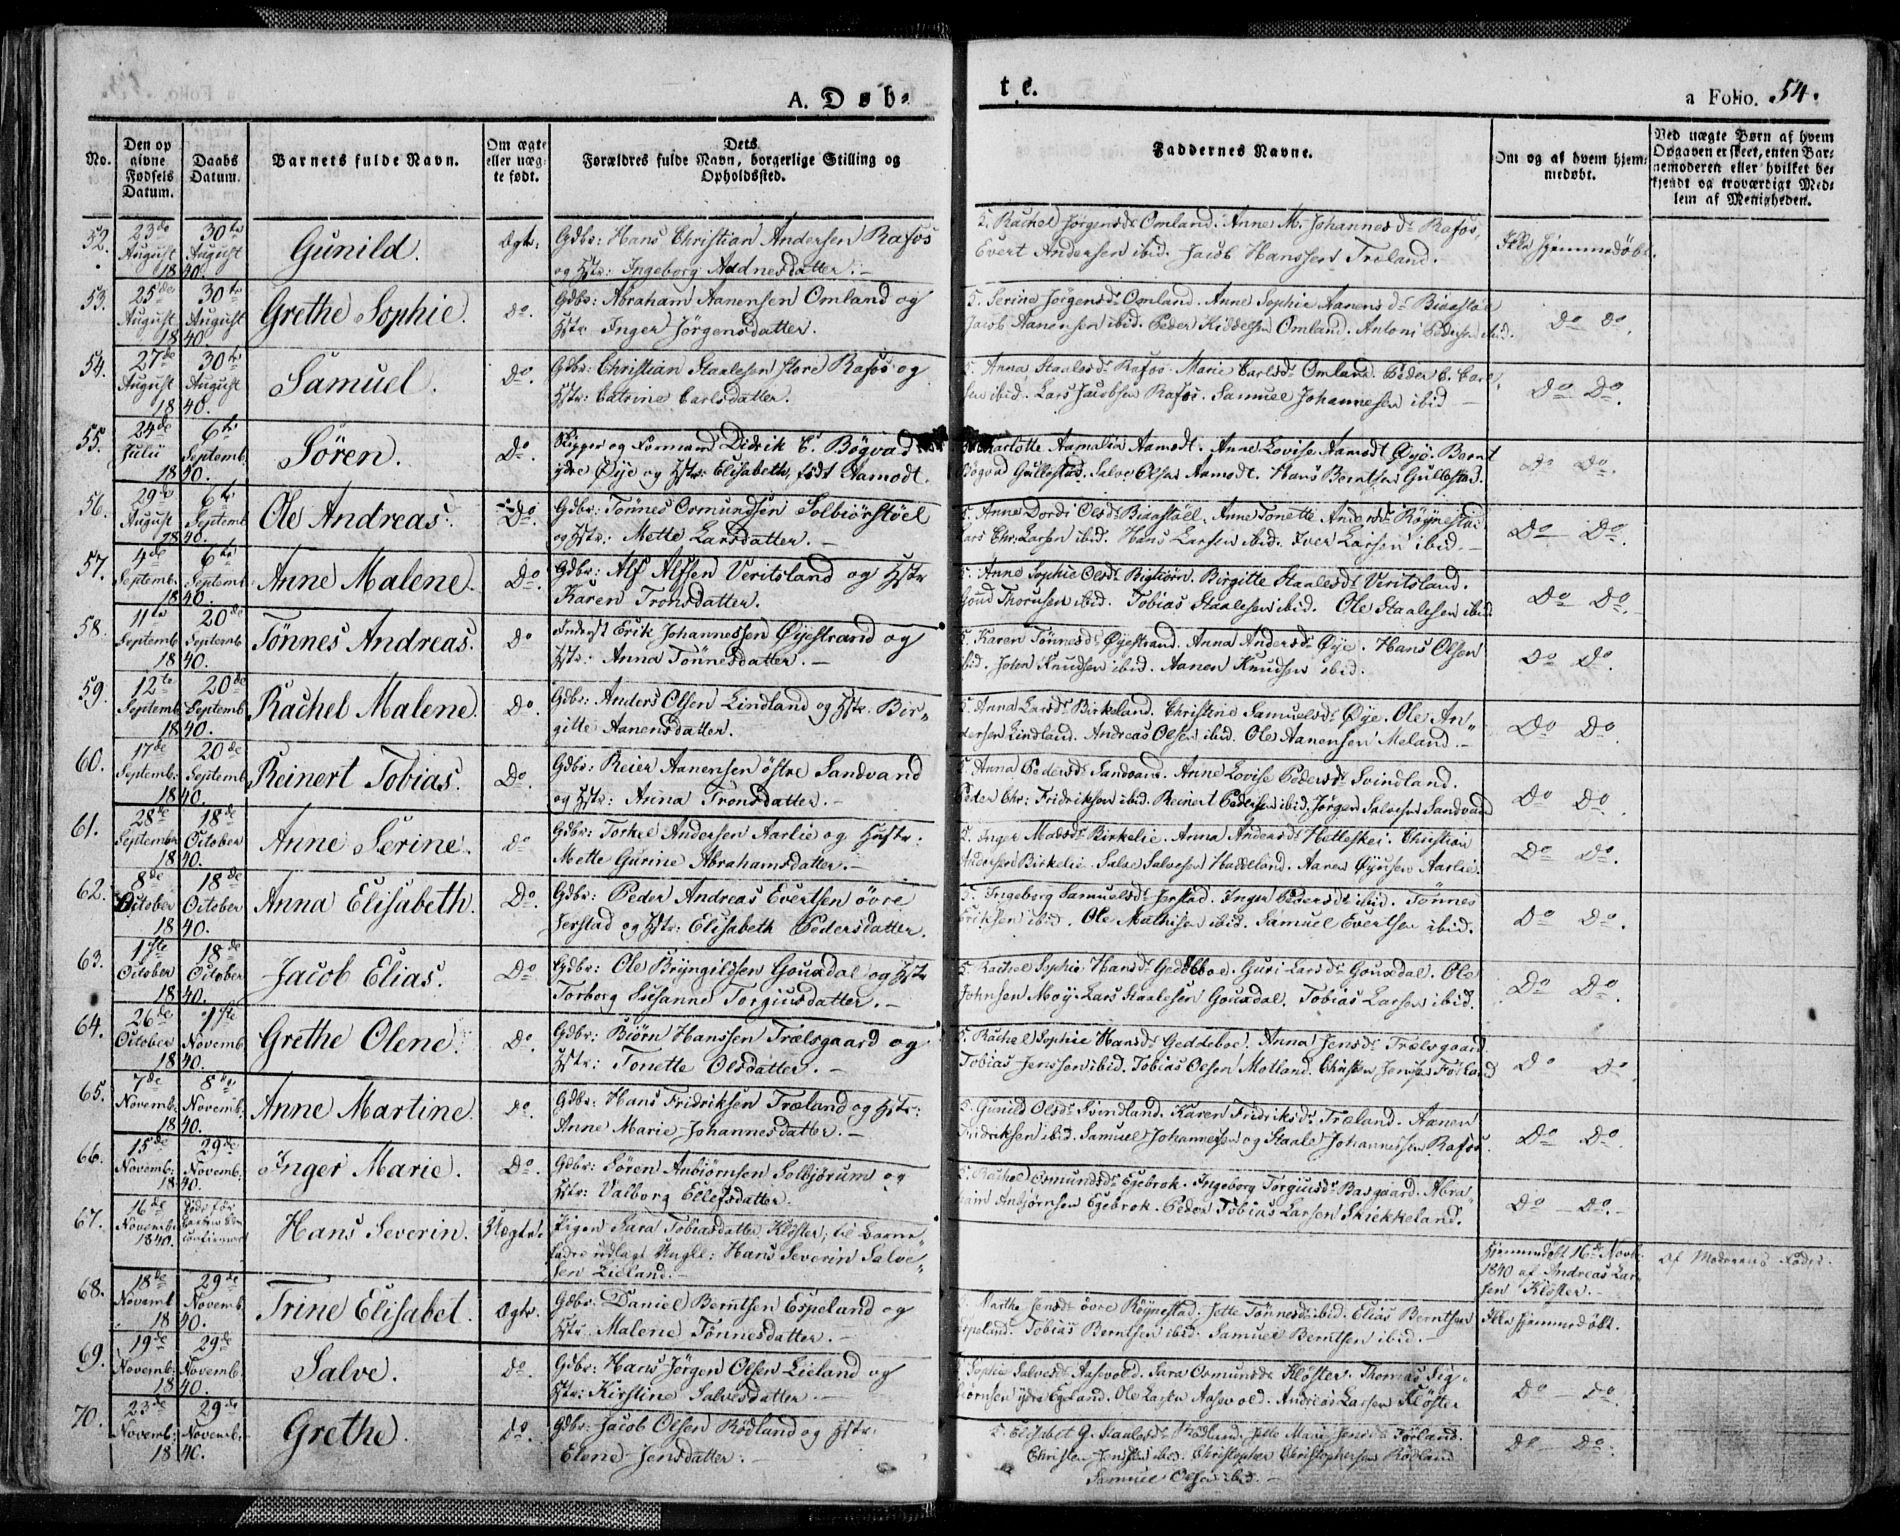 A. Døbte.
a Folio. 54.
No.
Den opgivne Fødsels Datum.
Daabs Datum.
Barnets fulde Navn.
Om ægte eller uægte født.
Dets Forældres fulde Navn, borgerlige Stilling og Opholdssted.
Faddernes Navne.
Om og af hvem hjemmedøbt.
Ved uægte Børn af hvem Opgaven er skeet, enten Barnemoderen eller hvilket bekjendt og troværdigt Medlem af Menigheden.
52. 23de August 1840. 30te August Gunild Ægte: Gdbr: Hans Christian Andersen Rafos
og Hstr: Ingeborg Aadnesdatter.
5. Rachel Jørgensdr Omland. Anne M. Johannesdr Rafos,
Evert Andersen ibid. Jacob Hanssen Træland.
Ikke hjemmedøbt.
53. 25de August 1840. 30te August Grethe Sophie. do. Gdbr: Abraham Aanensen Omland og
Hstr Inger Jörgensdatter.
5. Serine Jörgensdr Omland. Anne Sophie Aanensdr Biaastöl
Jacob Aanensen ibid. Peder Kiddelsen Omland. Antoni Pedersen ibid.
Do Do.
54. 27de August 1840. 30te August Samuel. Do. Gdbr: Christian Staalesen store Rafos og
Hstr: Catrine Carlsdatter.
5. Anna Staalesdr Rafos. Marie Carlsdr Omland. Peder C. Carl-
sen ibid. Lars Jacobsen Rafos. Samuel Johannesen ibid
Do Do.
55. 24de Julii 1840. 6te Septemb. Sören. Do. Skipper og Formand Didrik C. Bögvad
ydre Øye og Hstr: Elisabeth, født Aamodt.
Charlotte Aamalia Aamodt. Anne Lovise Aamodt Øyø. Bernt
Bögvad Gullestad. Salve Olsen Aamodt. Hans Berntsen Gullestad.
Do Do.
56. 29de August 1840. 6te Septemb. Ole Andreas. Do. Gdbr: Tönnes Osmundsen Solbiörstöel
og Hstr: Mette Larsdatter.
5. Anne Dordi Olsdr Biaastöll. Anne Tonette Andersdr Röynestad
Lars Chr: Larsen ibid. Hans Larsen ibid. Iver Larsen ibid.
Do Do.
57. 4de Septemb. 1840. 6te Septemb. Anne Malene. Do. Gdbr: Alf Alfsen Veritsland og Hstr
Karen Tronsdatter.
5. Anne Sophie Olsdr Bigtiörn. Birgitte Staalesdr Veritsland.
Goud Thorusen ibid. Tobias Staalesen ibid. Ole Staalesen ibid
Do Do.
58. 11te Septemb. 1840. 20de Septemb. Tönnes Andreas. Do Inderst Erik Johannessen Öyestrand og
Hstr: Anna Tönnesdatter.
5. Karen Tönnesdr Øyestrand. Anna Andersdr Øye. Hans Olsen
ibid. John Knudsen ibid. Aanen Knudsen ibid.
Do Do.
59. 12te Septemb. 1840. 20de Septemb. Rachel Malene. Do. Gdbr: Anders Olsen Lindland og Hstr Bir-
gitte Aanensdatter.
5. Anna Larsdr Birkeland. Christine Samuelsdr Øye. Ole An-
dersen Lindland. Andreas Olsen ibid. Ole Aanensen Meland.
Do Do.
60. 17de Septemb: 1840. 20de Septemb. Reinert Tobias. Do. Gdbr: Reier Aanensen östre Sandvand
og Hstr: Anna Tronsdatter.
5. Anna Pedersdr Sandvand. Anne Lovise Pedersdr Svindland.
Peder Chr: Fridriksen ibid. Reinert Pedersen ibid. Jörgen Salvesen Sandvand
Do Do.
61. 28de September 1840. 18de October Anne Serine. do Gdbr: Torkel Andersen Aarlie og Hustr:
Mette Gurine Abrahamsdatter.
5. Inger Madsdr Birkelie. Anna Andersdr Hetleskei. Christian
Andersen Birkelie. Salve Salvesen Haddland. Aanen Øyusen Aarlie.
Do Do.
62. 8de October 1840. 18de October Anna Elisabeth. Do. Gdbr: Peder Andreas Evertsen övre
Jerstad og Hstr: Elisabeth Pedersdatter.
5. Ingeborg Samuelsdr Jerstad. Inger Pedersdr ibid. Tönnes
Eriksen ibid. Ole Mathisen ibid. Samuel Evertsen ibid.
Do Do.
63. 1ste October 1840. 18de October Jacob Elias. Do Gdbr: Ole Bryngildsen Gousdal og Hstr
Torborg Susanne Torgiusdatter.
5. Rachel Sophie Hansdr Geddeboe. Guri Larsdr Gousdal. Ole
Johnsen Moy. Lars Staalesen Gousdal. Tobias Larsen ibid.
Do Do.
64. 26de October 1840. 1ste Novemb. Grethe Olene. Do. Gdbr: Biörn Hanssen Trælsgaard og
Hstr: Tonette Olsdatter.
5. Rachel Sophie Hansdr Geddeboe. Anna Jensdr Trælsgaard.
Tobias Jenssen ibid. Tobias Olsen Motland. Christen Jensen Förland
Do Do.
65. 7de Novemb: 1840. 8de Novemb. Anne Martine. do. Gdbr: Hans Fridriksen Træland og Hstr:
Anne Marie Johannesdatter.
5. Gunild Olsdr Svindland. Karen Fridriksdr Træland. Aanen
Fridriksen ibid. Samuel Johannesen og Staale Johannessen Rafos.
Do Do.
66. 15de Novemb: 1840. 29de Novemb: Inger Marie. Do. Gdbr: Sören Anbiörnsen Solbjörum og
Hstr: Valborg Ellefsdatter.
5. Rachel Osmundsdr Egebrok. Ingeborg Torgiusdr Basgaard. Abra-
ham Anbjörnsen Egebrok. Peder Tobias Larsen Skiekkeland.
Do Do.
67. 16de Novemb. 1840. Hans Severin. Uægte: Pigen Sara Tobiasdatter Kløster; til Barne-
fader udlagt Ungkl: Hans Severin Salve-
sen Lieland.
Hjemmedøbt 16de Novb:
1840 af Andreas Lar-
sen Kløster.
Af Moderens Fader.
68. 18de Novemb 1840. 29de Novemb. Trine Elisabet. Ægte. Gdbr: Daniel Berntsen Espeland og
Hstr. Malene Tönnesdatter.
Marthe Jensdr övre Röynestad. Jette Tönnesdr ibid. Elias Berntsen
Espeland. Tobias Berntsen ibid. Samuel Berntsen ibid.
Ikke hjemmedøbt.
69. 19de Novemb: 1840. 29de Novemb. Salve. do. Gdbr: Hans Jörgen Olsen Lieland og
Hstr: Kirstine Salvesdatter.
Sophie Salvesdr Aasevold. Sara Osmundsdr Klöster. Thomas Sig-
biörnsen ydre Egeland. Ole Larsen Aasevold. Andreas Larsen Klöster
Do Do.
70. 23de Novemb: 1840. 29de Novemb: Grethe. do. Gdbr: Jacob Olsen Rödland og Hstr:
Elene Jensdatter.
5. Elisabet G. Staalesdr Rödland. Jette Marie Jensdr Förland.
Christen Jenssen ibid. Christopher Christophersen Rödland
Samuel Olsen ibid.
Do Do.